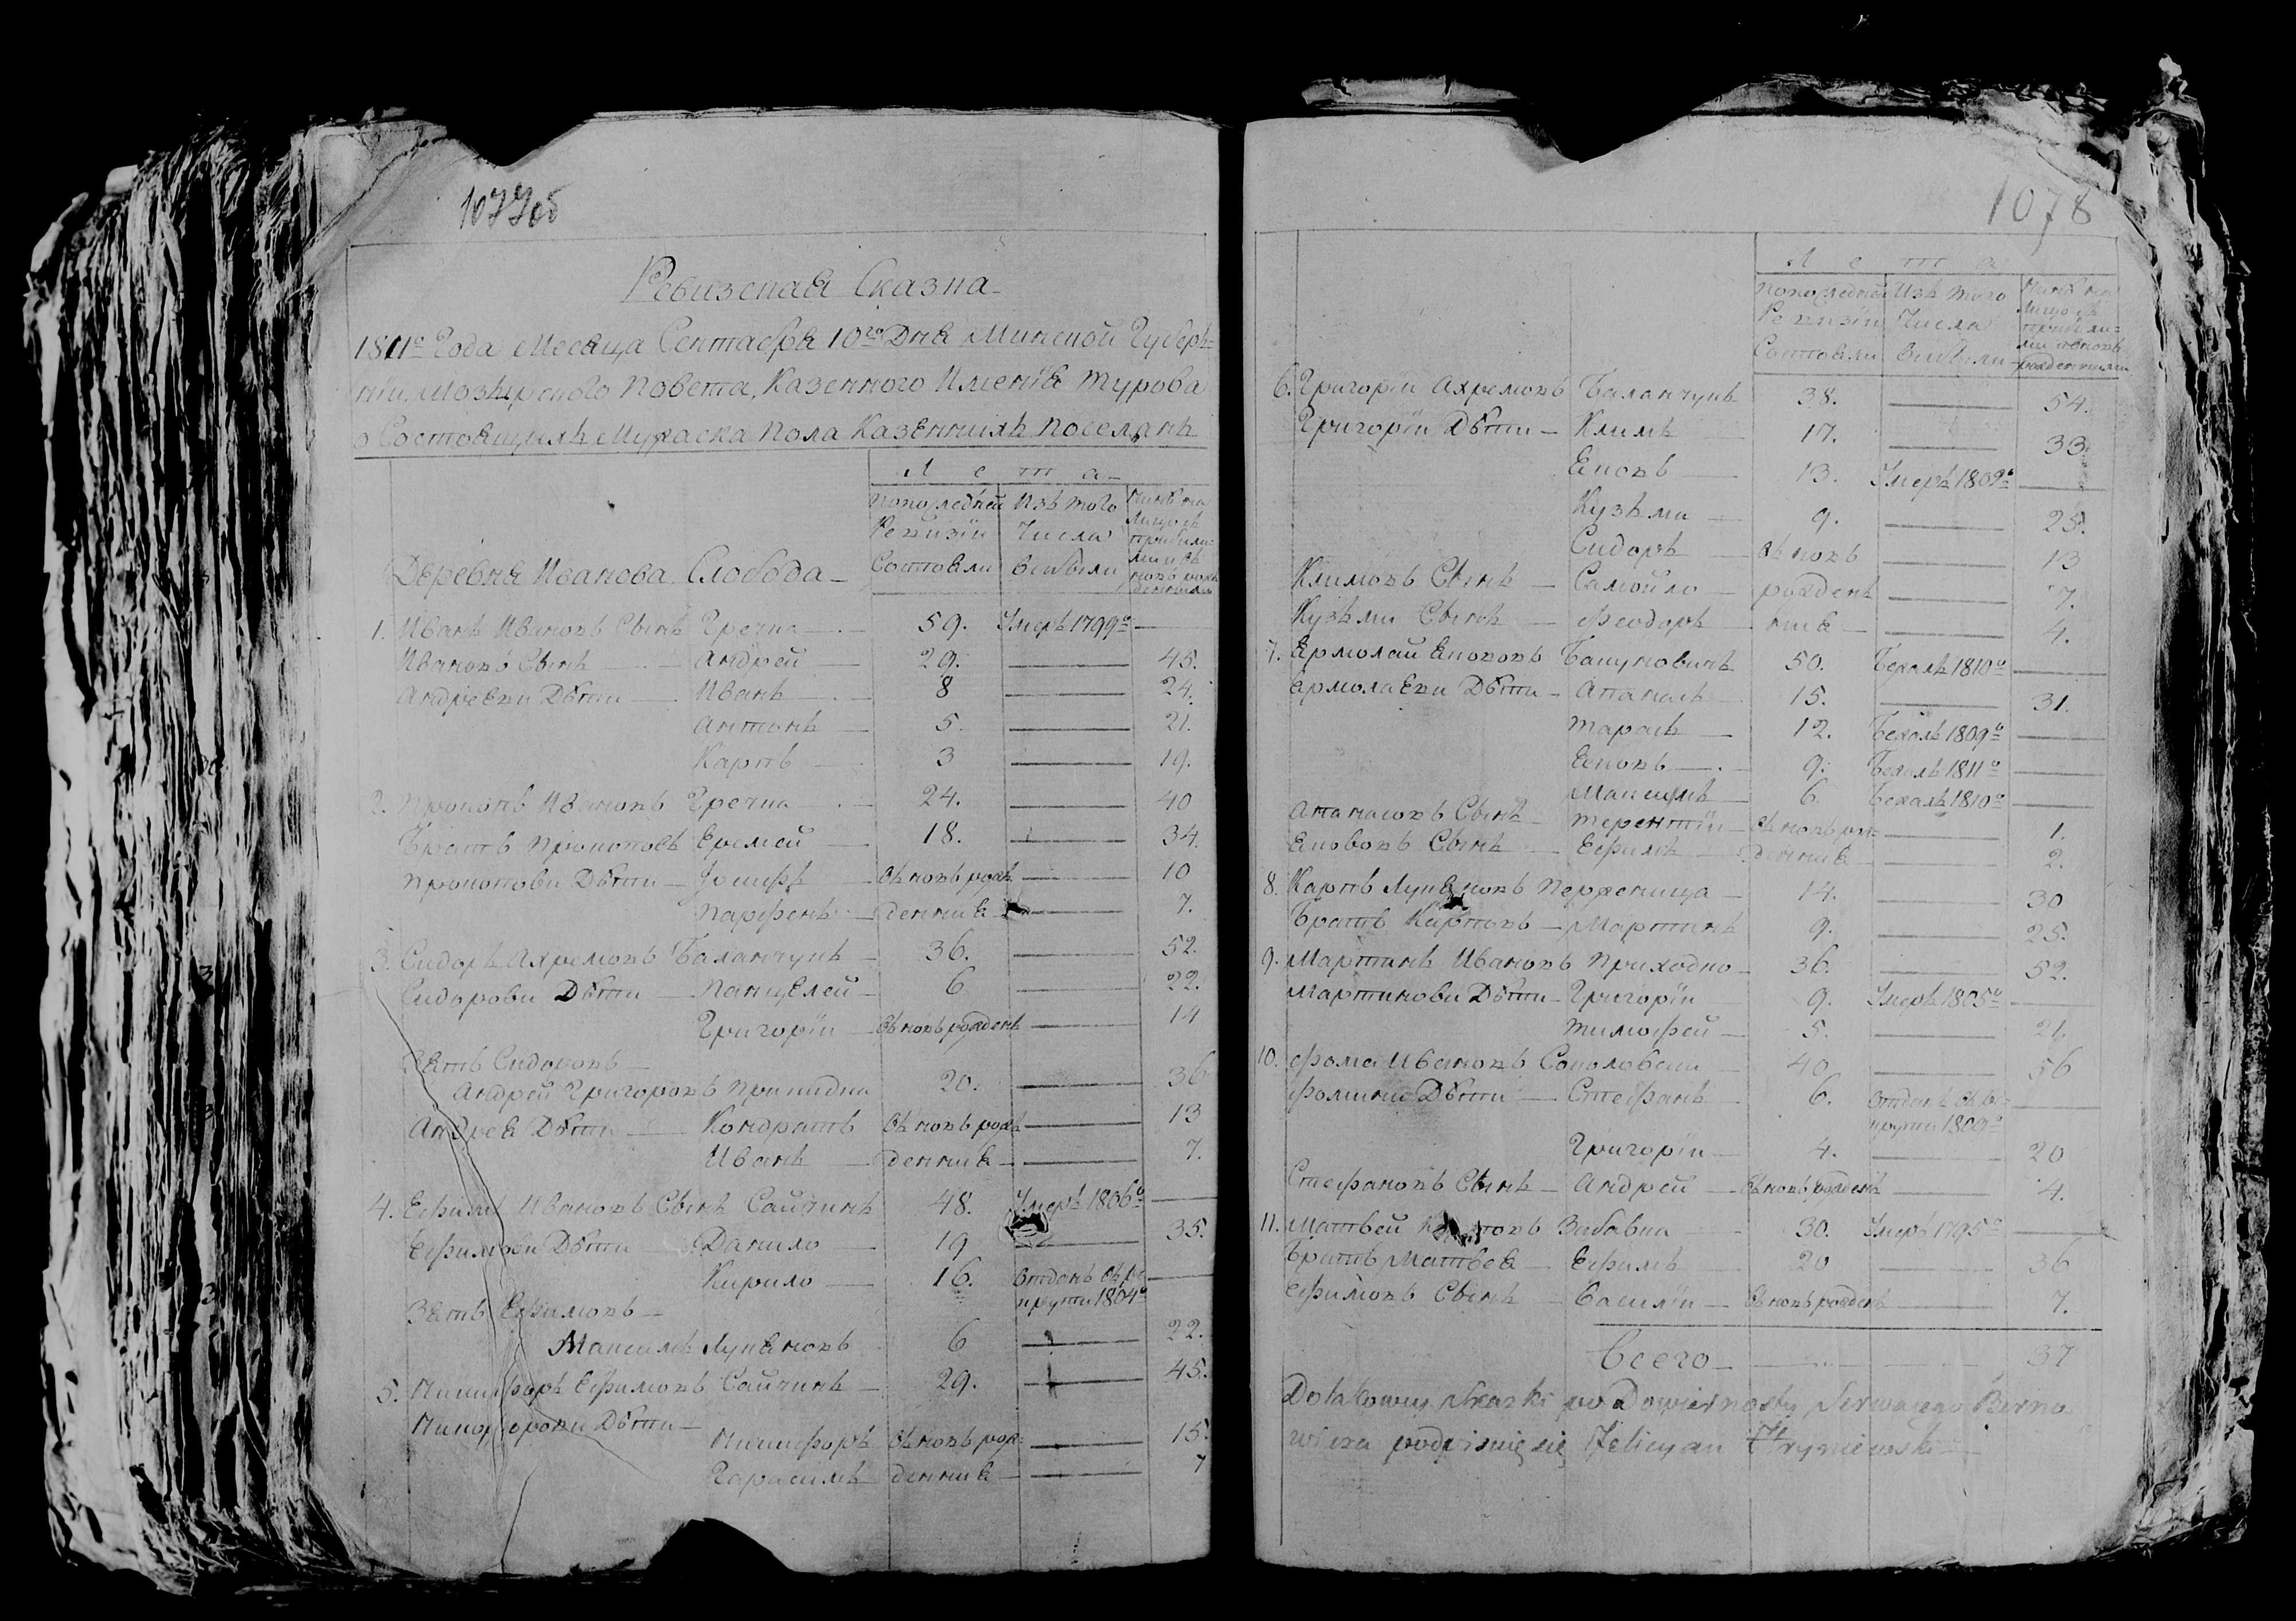 1077об
Ревизская Сказка
1811го Года Месяца Сентября 10го Дня Минской Губер=
нии, Мозырского Повета, Казенного Имения Турова
о Состоящихъ Мужеска Пола Казенныхъ Поселянъ
Лета
Попоследней Ревизiи Состояли
Изъ того Числа выбыли
Деревня Иванова Слобода
1. Иванъ Ивановъ Сынъ Гречка 59. Умеръ 1799о
Ивановъ Сынъ Андрей 29. 45.
Андреевы Дѣти Иванъ 8 24.
Антонъ 5. 21.
Карпъ 3 19.
2. Прокопъ Ивановъ Гречка 24. 40
Братъ Прокоповъ Еремей 18. 34.
Прокоповы Дѣти Iосифъ вновь рож 10
Парфенъ денныя 7.
3. Сидоръ Ахремовъ Баланчукъ 36. 52.
Сидоровы Дѣти Панцелей 6 22.
Григорiи вновь рожденъ 14
Зять Сидоровъ
Андрей Григоровъ 20. 36
Андрея Дѣти Кондратъ вновь рож 13
Иванъ денныя 7.
4. Ефимъ Ивановъ Сынъ Сайчикъ 48. Умеръ 1806о
Ефимовы Дѣти Данило 19 35.
Кирило 16. Отданъ въ ре=
круты 1804о
Зять Ефимовъ
Максимъ Лукяновъ 6 22.
5. Никифоръ Ефимовъ Сайчикъ 29. 45.
Никофоровы Дѣти
Никифоръ вновь рож= 15.
Гарасимъ денныя 7
1078
Лета
Попоследней Ревизiи Состояли
Изъ того Числа выбыли
6. Григорiи Ахремовъ Баланчукъ 38. 54.
Григорiи Дѣти Климъ 17. 33.
Яковъ 13. Умеръ 1809о
Кузьма 9. 25.
Сидоръ вновь 13
Климовъ Сынъ Самойло рожден 7.
Кузьми Сынъ Феодоръ ныя 4.
7. Ермолай Яковъ Бакуновичъ 50. Бежалъ 1810о
Ермолаевы Дѣти Апанасъ 15. 31.
Тарасъ 12. Бежалъ 1809о
Яковъ 9. Бежалъ 1811о
Максимъ 6. Бежалъ 1810о
Апанасовъ Сынъ Терентiи вновь рож= 1.
Яковъ Сынъ Ефимъ денныя 2.
8. Карпъ Лукяновъ 14. 30
Братъ Карповъ Мартинъ 9. 25.
9. Мартинъ Ивановъ Приходко 36. 52.
Мартиновы Дѣти Григорiи 9. Умеръ 1805о
Тимофей 5. 21.
10. Фома Ивановъ 40 56
Фомины Дѣти Стефанъ 6. Отданъ въ ре=
круты 1809о
Григорiи 4. 20
Стефановъ Сынъ Андрей вновь рожденъ 4.
11. Матвей Забавка 30. Умеръ 1795о
Братъ Матвея Ефимъ 20 36
Ефимовъ Сынъ Василiи вновь рожденъ 7.
Всего 37
Do takowey skazki po Dowiernosty
podpisuię się Felicyan Hryniewski